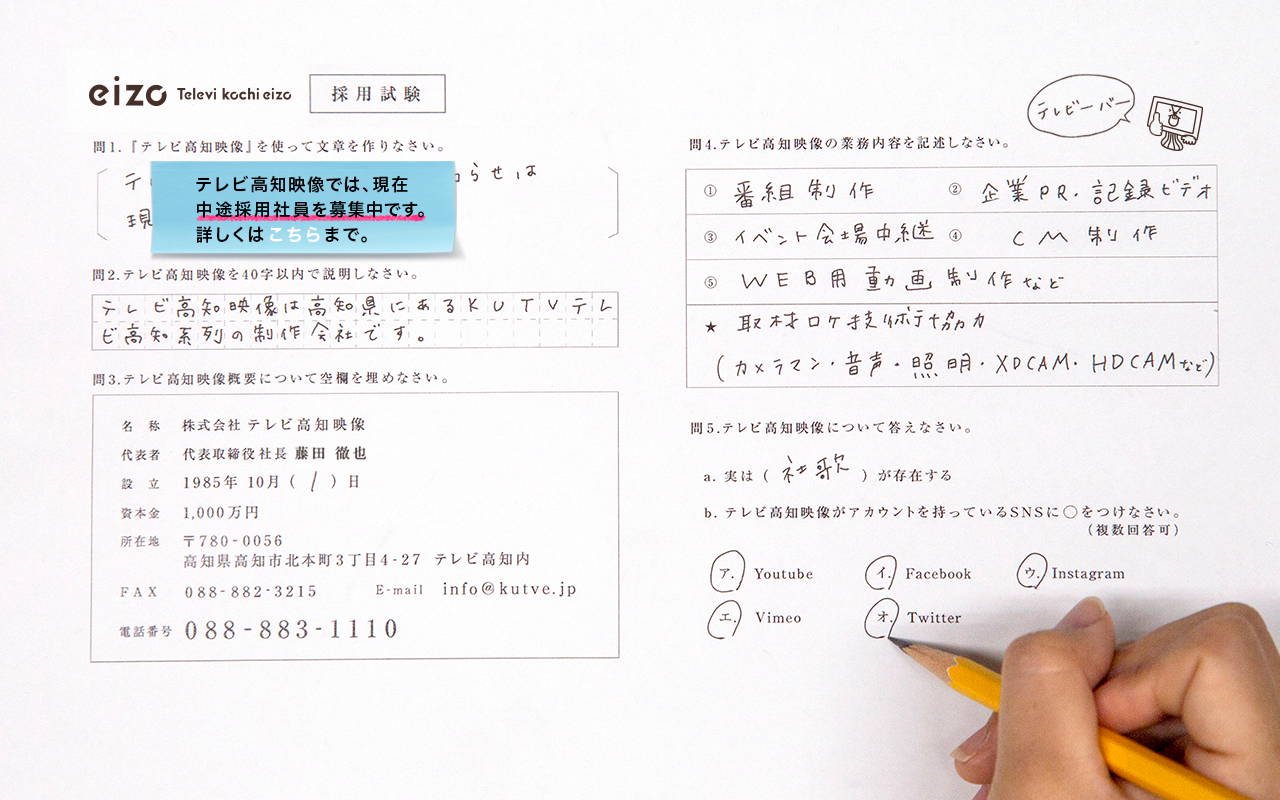 eizo Televi kochi eizo 採用試験
問1.『テレビ高知映像』を使って文章を作りなさい。
テ らせは
現
テレビ高知映像では、現在
中途採用社員を募集中です。
詳しくはこちらまで。
問2.テレビ高知映像を40字以内で説明しなさい。
テレビ高知映像は高知県にあるKUTVテレ
ビ高知系列の制作会社です。
問3.テレビ高知映像概要について空欄を埋めなさい。
名 称 株式会社 テレビ高知映像
代表者 代表取締役社長 藤田 徹也
設 立 1985年 10月 ( 1 ) 日
資本金 1,000万円
所在地 〒780-0056
高知県高知市北本町3丁目4-27 テレビ高知内
FAX 088-882-3215 E-mail info@kutve.jp
電話番号 088-883-1110
テレビーバー
問4.テレビ高知映像の業務内容を記述しなさい。
① 番組制作 ② 企業PR・記録ビデオ
③ イベント会場中継 ④ CM制作
⑤ WEB用動画制作など
★ 取材ロケ技術協力
(カメラマン・音声・照明・XDCAM・HDCAMなど)
問5.テレビ高知映像について答えなさい。
a. 実は ( 社歌 ) が存在する
b. テレビ高知映像がアカウントを持っているSNSに○をつけなさい。
(複数回答可)
ア. Youtube イ. Facebook ウ. Instagram
エ. Vimeo オ. Twitter